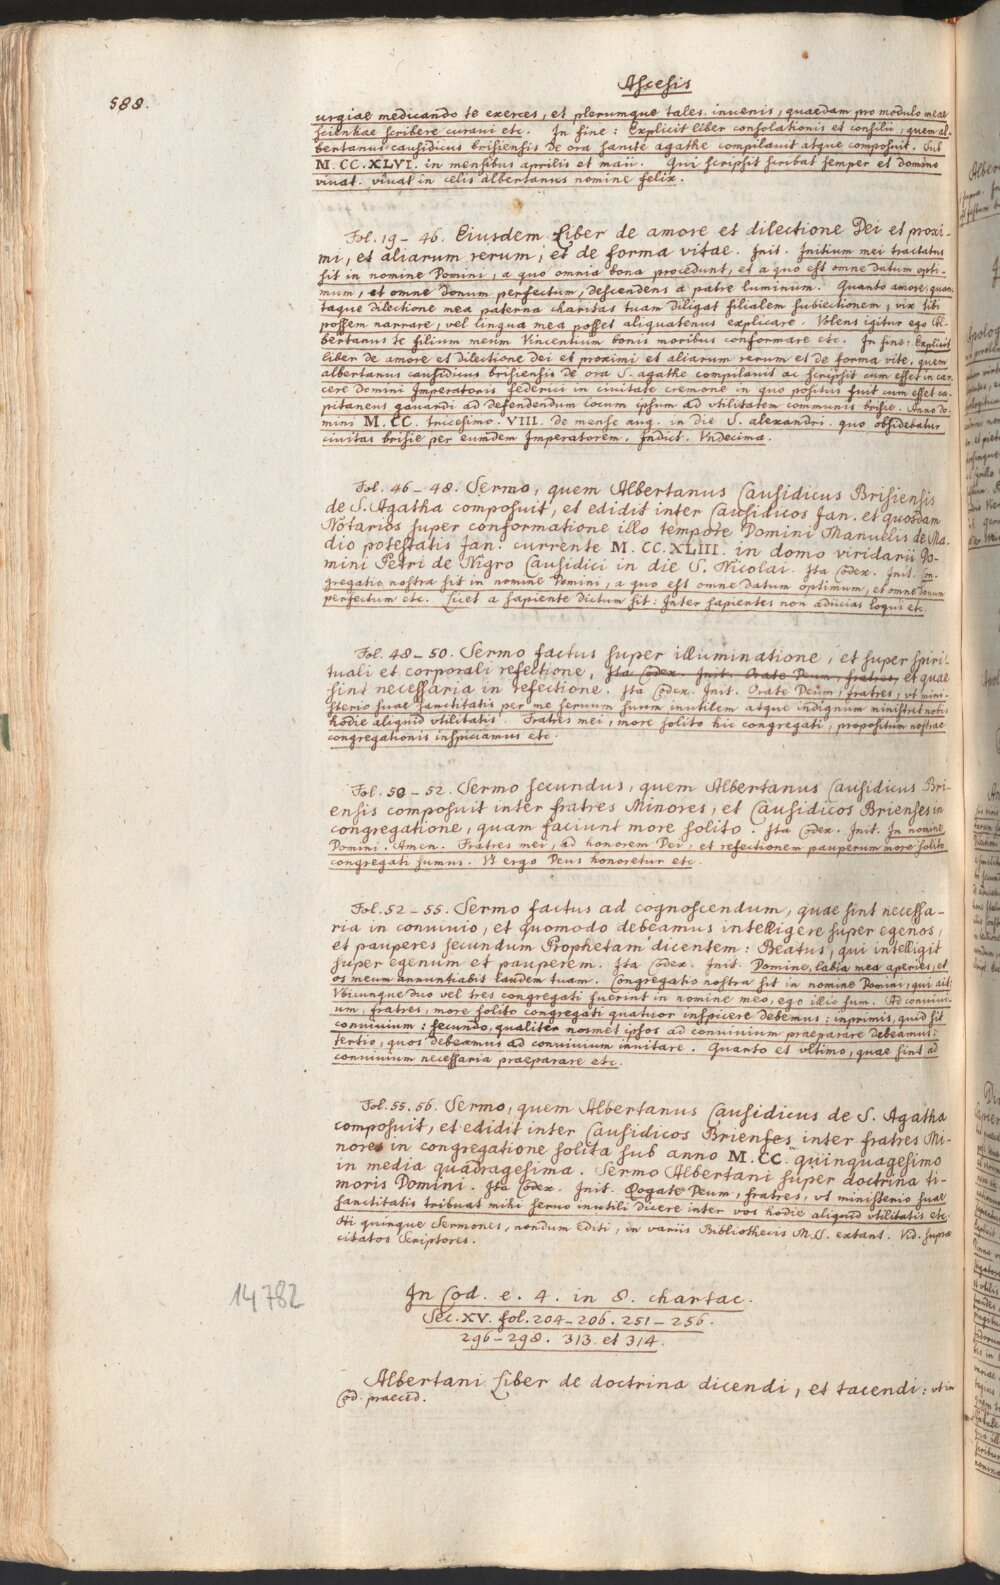 Ascesis
588.
urgiae medicando te exerces, et plerumque tales invenis, quaedam pro modulo meae
scientiae scribere curavi etc. In fine: Explicit liber consolationis et consilii, quem al-
bertanus causidicus brisiensis de ora sancte agathe compilavit atque composuit. Sub
M.CC.XLVI. in mensibus aprilis et maii. Qui scripsit scribat semper et domino
vivat. vivat in celis albertanus nomine felix.
Fol. 19-46. Eiusdem Liber de amore et dilectione Dei et proxi-
mi, et aliarum rerum, et de forma vitae. Init. Initium mei tractatus
sit in nomine Domini, a quo omnia bona procedunt, et a quo est omne datum opti-
mum, et omne donum perfectum, descendens a patre luminum. Quanto amore, quan-
taque dilectione mea paterna charitas tuam diligat filialem subiectionem, vix tibi
possem narrare, vel lingua mea posset aliquatenus explicare. Volens igitur ego Al-
bertanus te filium meum Vincentium bonis moribus conformare etc. In fine: Explicit
liber de amore et dilectione Dei et proximi et aliarum rerum et de forma vite, quem
albertanus causidicus brisiensis de ora S. agathe compilavit ac scripsit cum esset in car-
cere Domini Imperatoris federici in civitate cremone in quo positus fuit cum esset ca-
pitaneus gavardi ad defendendum locum ipsum ad utilitatem communis brisie. Anno do-
mini M.CC. tricesimo. VIII. de mense aug. in die S. alexandri. quo obsidebatur
civitas brisie per eumdem Imperatorem. Indict. Vndecima.
Fol. 46-48. Sermo, quem Albertanus Causidicus Brisiensis
de S. Agatha composuit, et edidit inter Causidicos Jan. et quosdam
Notarios super conformatione illo tempore Domini Manuelis de Ma-
dio potestatis Jan. currente M.CC.XLIII. in domo viridarii Do-
mini Petri de Nigro Causidici in die S. Nicolai. Ita Codex. Init. Con-
gregatio nostra sit in nomine Domini, a quo est omne datum optimum, et omne donum
perfectum etc. Licet a sapiente dictum sit: Inter sapientes non adiicias loqui etc.
Fol. 48-50. Sermo factus super illuminatione, et super spiri-
tuali et corporali refectione, Ita Codex. Init. Orate Deum, fratres, et quae
sint necessaria in refectione. Ita Codex. Init. Orate Deum, fratres, ut mini-
sterio suae sanctitatis per me servum suum inutilem atque indignum ministret nobis
hodie aliquid utilitatis. Fratres mei, more solito hic congregati, propositum nostrae
congregationis inspiciamus etc.
Fol. 50-52. Sermo secundus, quem Albertanus Causidicus Bri-
ensis composuit inter fratres Minores, et Causidicos Brienses in
congregatione, quam faciunt more solito. Ita Codex. Init. In nomine
Domini. Amen. Fratres mei, ad honorem Dei, et refectionem pauperum more solito
congregati sumus. Vt ergo Deus honoretur etc.
Fol. 52-55. Sermo factus ad cognoscendum, quae sint necessa-
ria in convivio, et quomodo debeamus intelligere super egenos,
et pauperes secundum Prophetam dicentem: Beatus, qui intelligit
super egenum et pauperem. Ita Codex. Init. Domine, labia mea aperies, et
os meum annuntiabit laudem tuam. Congregatio nostra sit in nomine Domini, qui ait:
Vbicunque duo vel tres congregati fuerint in nomine meo, ego illic sum. Ad convivi-
um, fratres, more solito congregati quatuor inspicere debemus: inprimis, quid sit
convivium: secundo, qualiter nosmet ipsos ad convivium praeparare debeamus:
tertio, quos debeamus ad convivium invitare. Quarto et ultimo, quae sint ad
convivium necessaria praeparare etc.
Fol. 55.56. Sermo, quem Albertanus Causidicus de S. Agatha
composuit, et edidit inter Causidicos Brienses inter fratres Mi-
nores in congregatione solita sub anno M.CC. quinquagesimo
in media quadragesima. Sermo Albertani super doctrina ti-
moris Domini. Ita Codex. Init. Rogate Deum, fratres, ut ministerio suae
sanctitatis tribuat mihi servo inutili dicere inter vos hodie aliquid utilitatis etc.
Hi quinque Sermones, nondum editi, in variis Bibliothecis M.S. extant. Vid. supra
citatos Scriptores.
14782
In Cod. e. 4. in 8. chartac.
Sec. XV. fol. 204-206. 251-256.
296-298. 313. et 314.
Albertani Liber de doctrina dicendi, et tacendi: ut in
Cod. praeced.